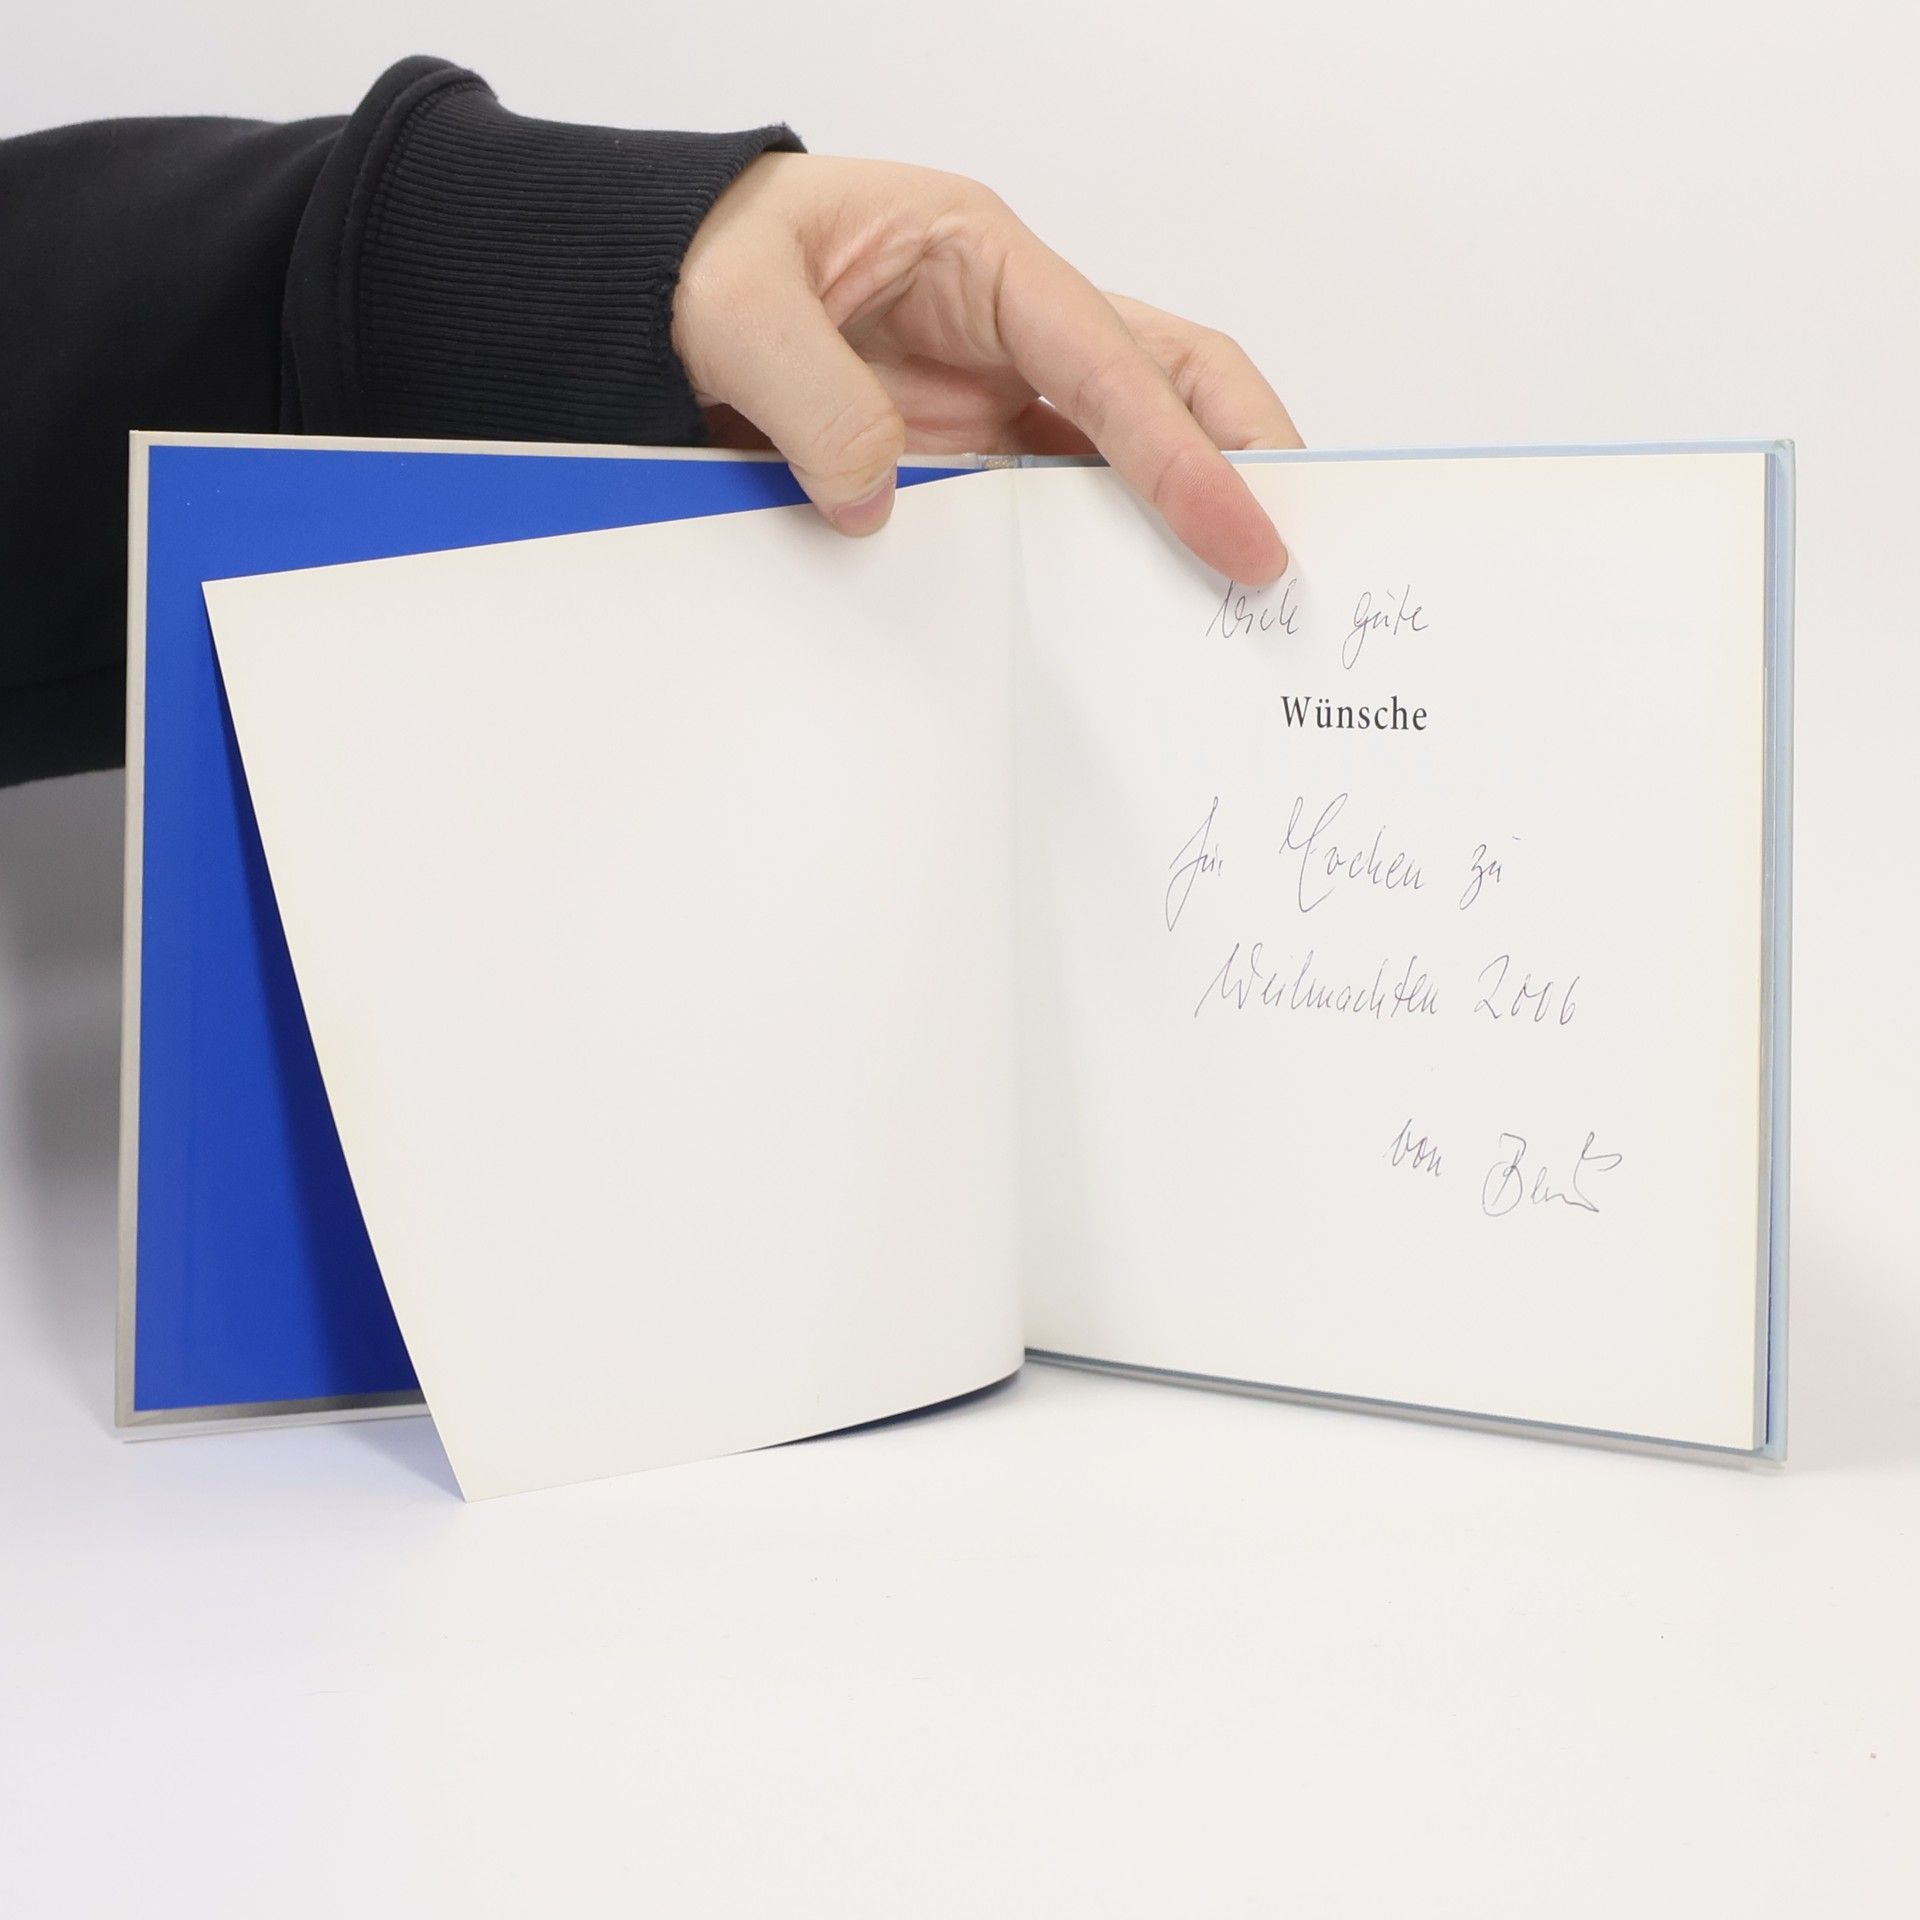 Viele gute
Wünsche
für Jochen zu
Weihnachten 2006
von Bernd